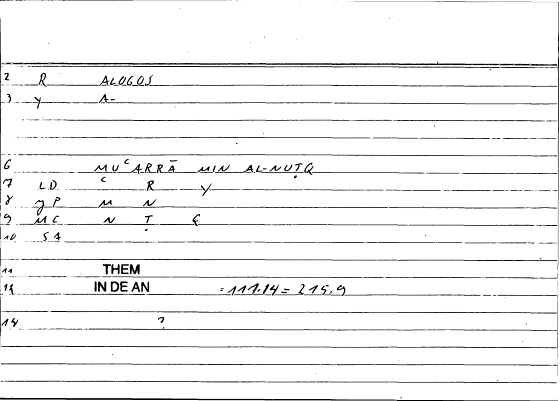 2 R ALOGOS
3 y A-
6 MUʿARRĀ MIN AL-NUṬQ
7 LD ʿ R Y
8 gP M N
9 MC N Ṭ Q
10 SA
11 THEM
13 IN DE AN =111.14 = 215.9
14 ?